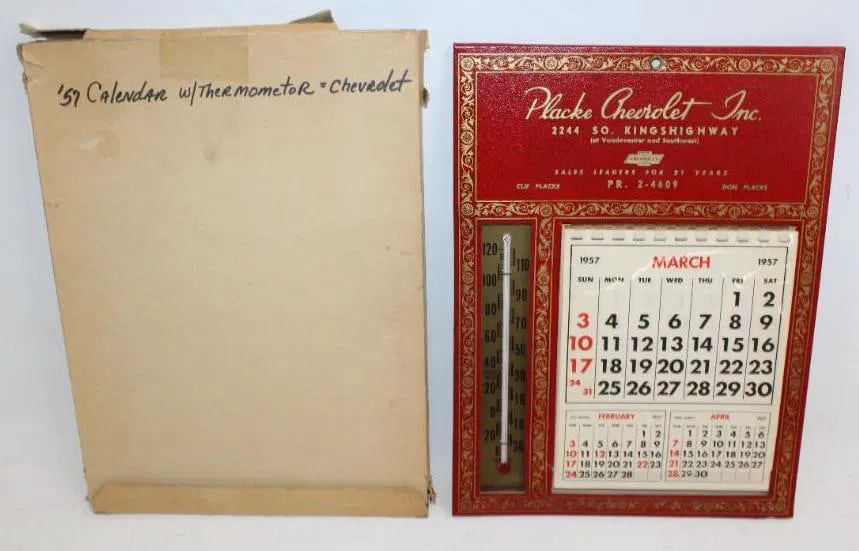 '57 Calendar w/Thermometor = Chevrolet
Placke Chevrolet Inc.
2244 SO. KINGSHIGHWAY
(at Vandeventer and Southwest)
CHEVROLET
SALES LEADERS FOR 21 YEARS
CLIF PLACKE PR. 2-4609 DON PLACKE
120
110
100
90
80
70
60
50
40
30
20
10
0
20
30
1957 MARCH 1957
SUN MON TUE WED THU FRI SAT
1 2
3 4 5 6 7 8 9
10 11 12 13 14 15 16
17 18 19 20 21 22 23
24 31 25 26 27 28 29 30
FEBRUARY 1957
1 2
3 4 5 6 7 8 9
10 11 12 13 14 15 16
17 18 19 20 21 22 23
24 25 26 27 28
APRIL 1957
1 2 3 4 5 6
7 8 9 10 11 12 13
14 15 16 17 18 19 20
21 22 23 24 25 26 27
28 29 30